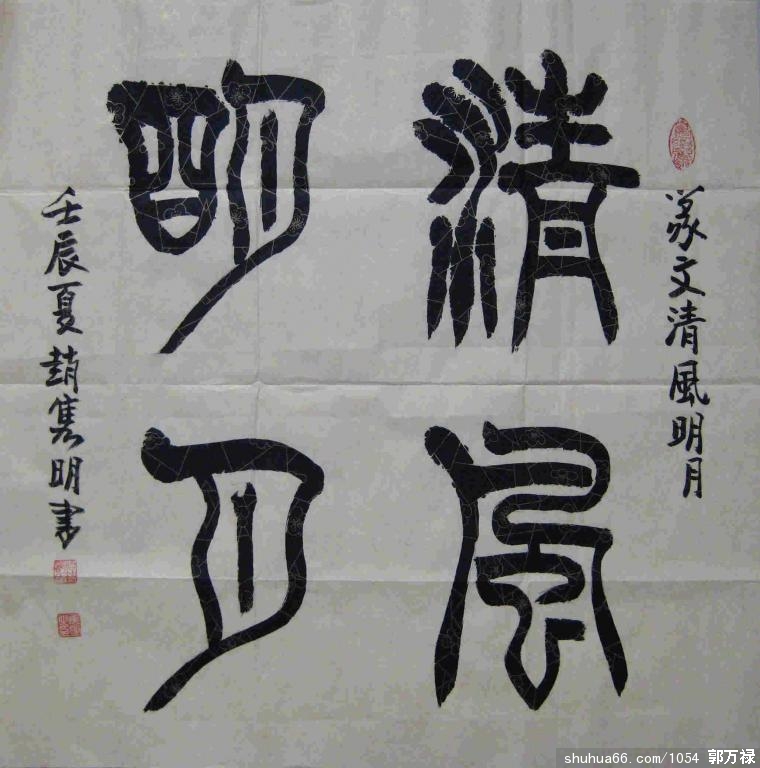 篆文清風明月
清風
明月
壬辰夏趙雋明書
shuhua66.com/1054 郭万禄